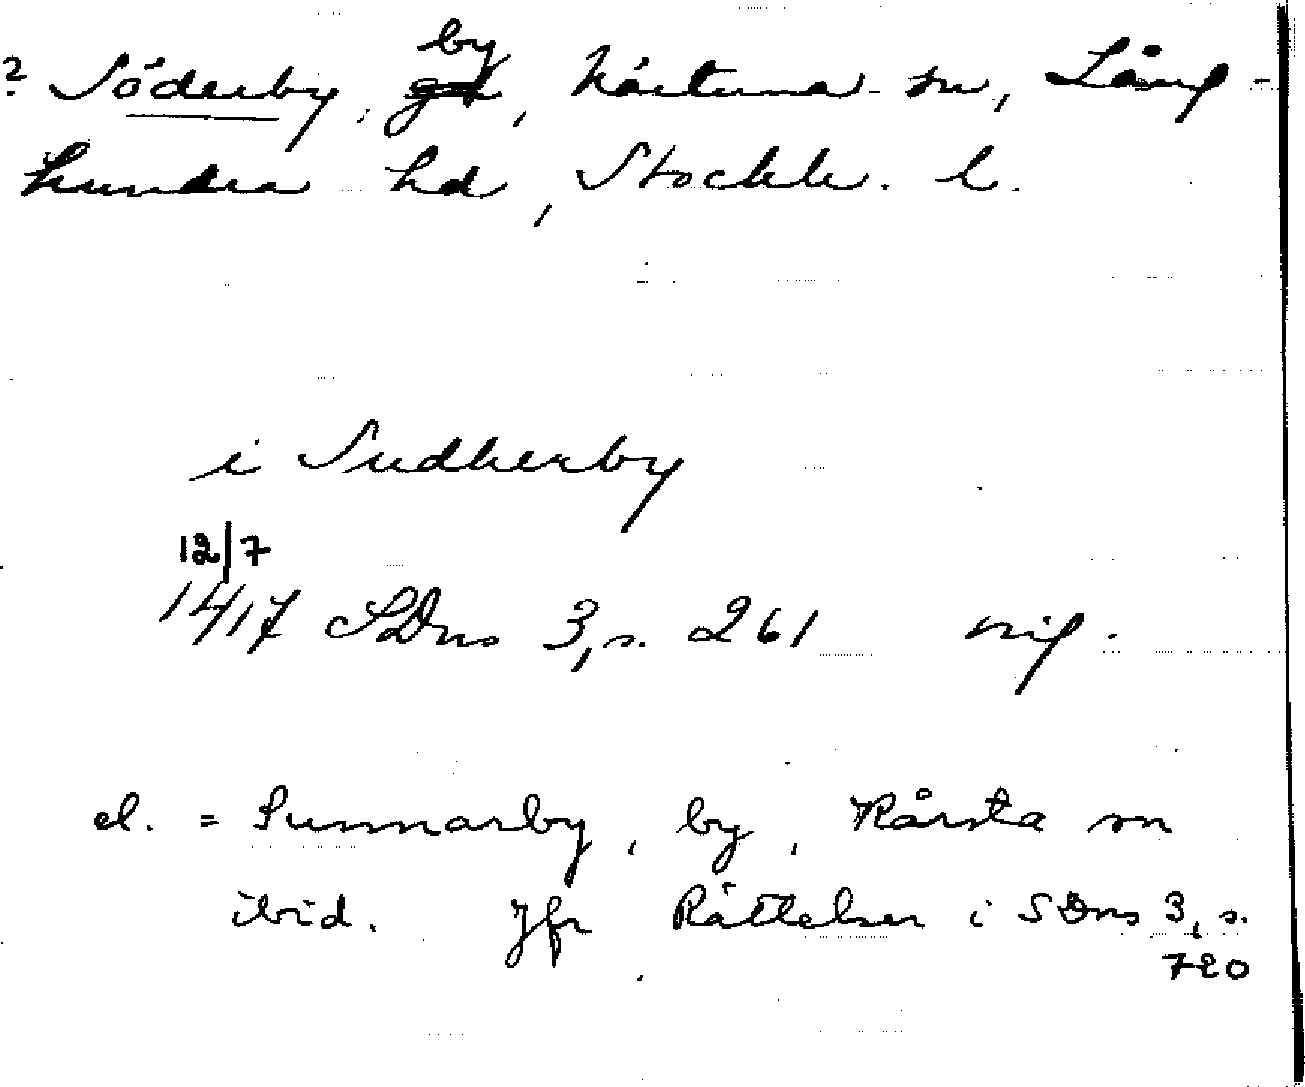 by
? Söderby, gd, Närtuna sn, Lång-
hundra hd, Stockh. l.
i Sudherby
12/7
1417 SDns 3, s. 261 orig.
el. = Sunnarby, by, Kårsta sn
ibid. Jfr Rättelser i SDns 3, s.
720